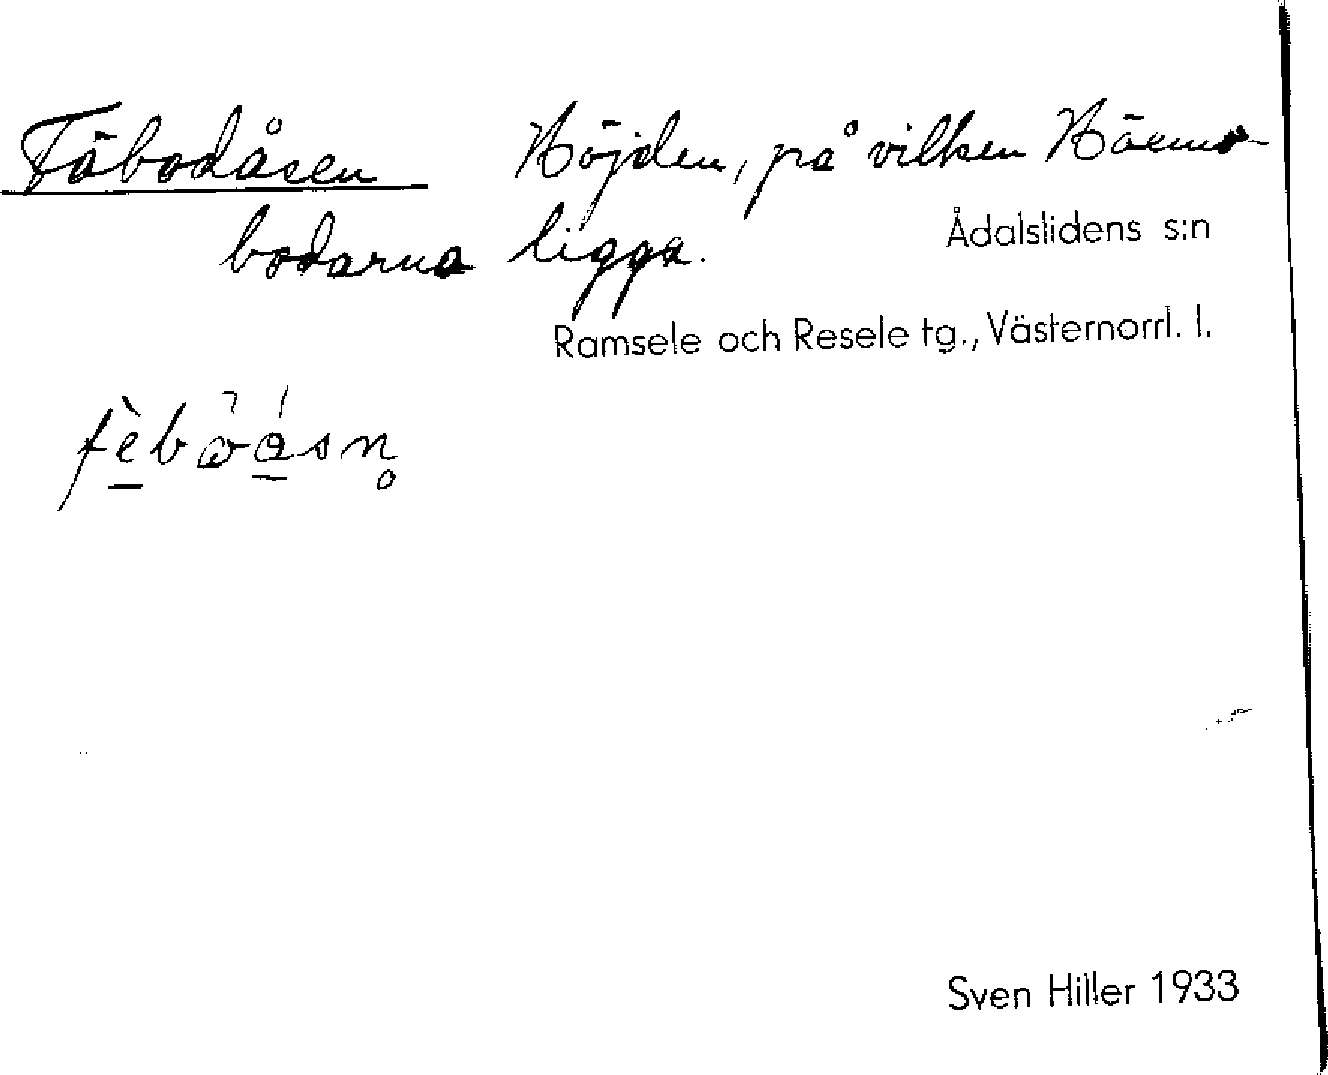 Fäbodåsen Höjden, på vilken Härmo-
bodarna ligga.
Ådalslidens s:n
Ramsele och Resele tg., Västernorrl. l.
Sven Hiller 1933